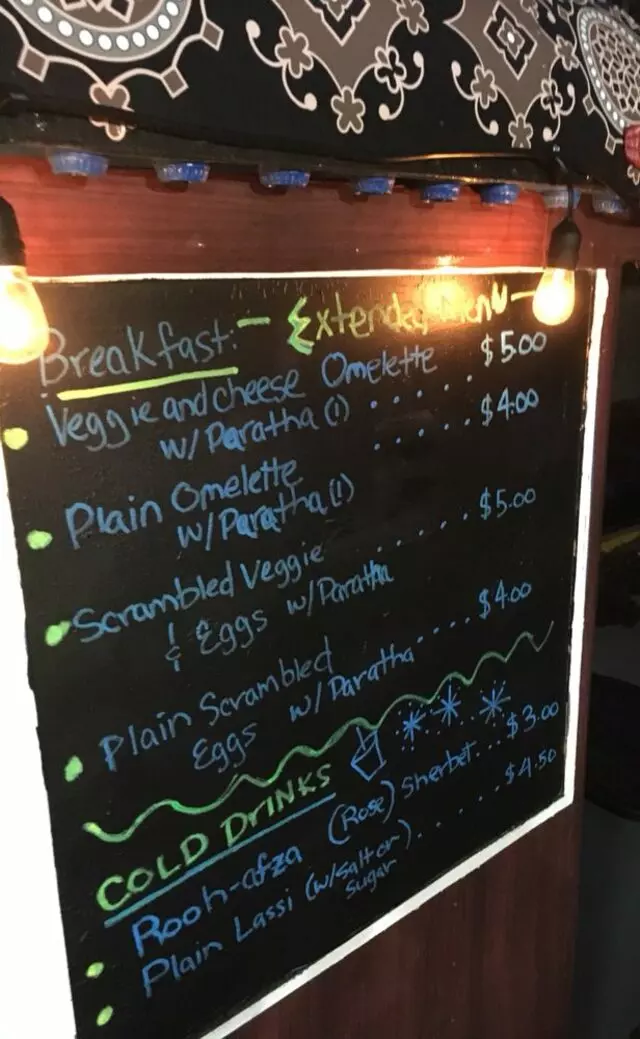 Breakfast:- Extended Menu-
Veggie and cheese Omelette $5.00
w/Paratha (1) ......
Plain Omelette ...... $4.00
w/Paratha (1)
Scrambled Veggie ...... $5.00
& Eggs w/Paratha
Plain Scrambled .... $4.00
Eggs w/Paratha
COLD DrINKS
Rooh-afza (Rose) Sherbet... $3.00
Plain Lassi (w/Salt or) ...... $4.50
Sugar